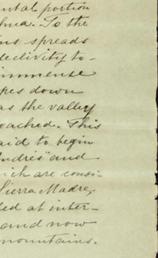 ental portion
hua. To the
ns spreads
declivity to-
immense
kes down
as the valley
oached. This
aid to begin
Andrés" and
hich are consi-
Sierra Madre,
ed at inter-
and now
mountains.